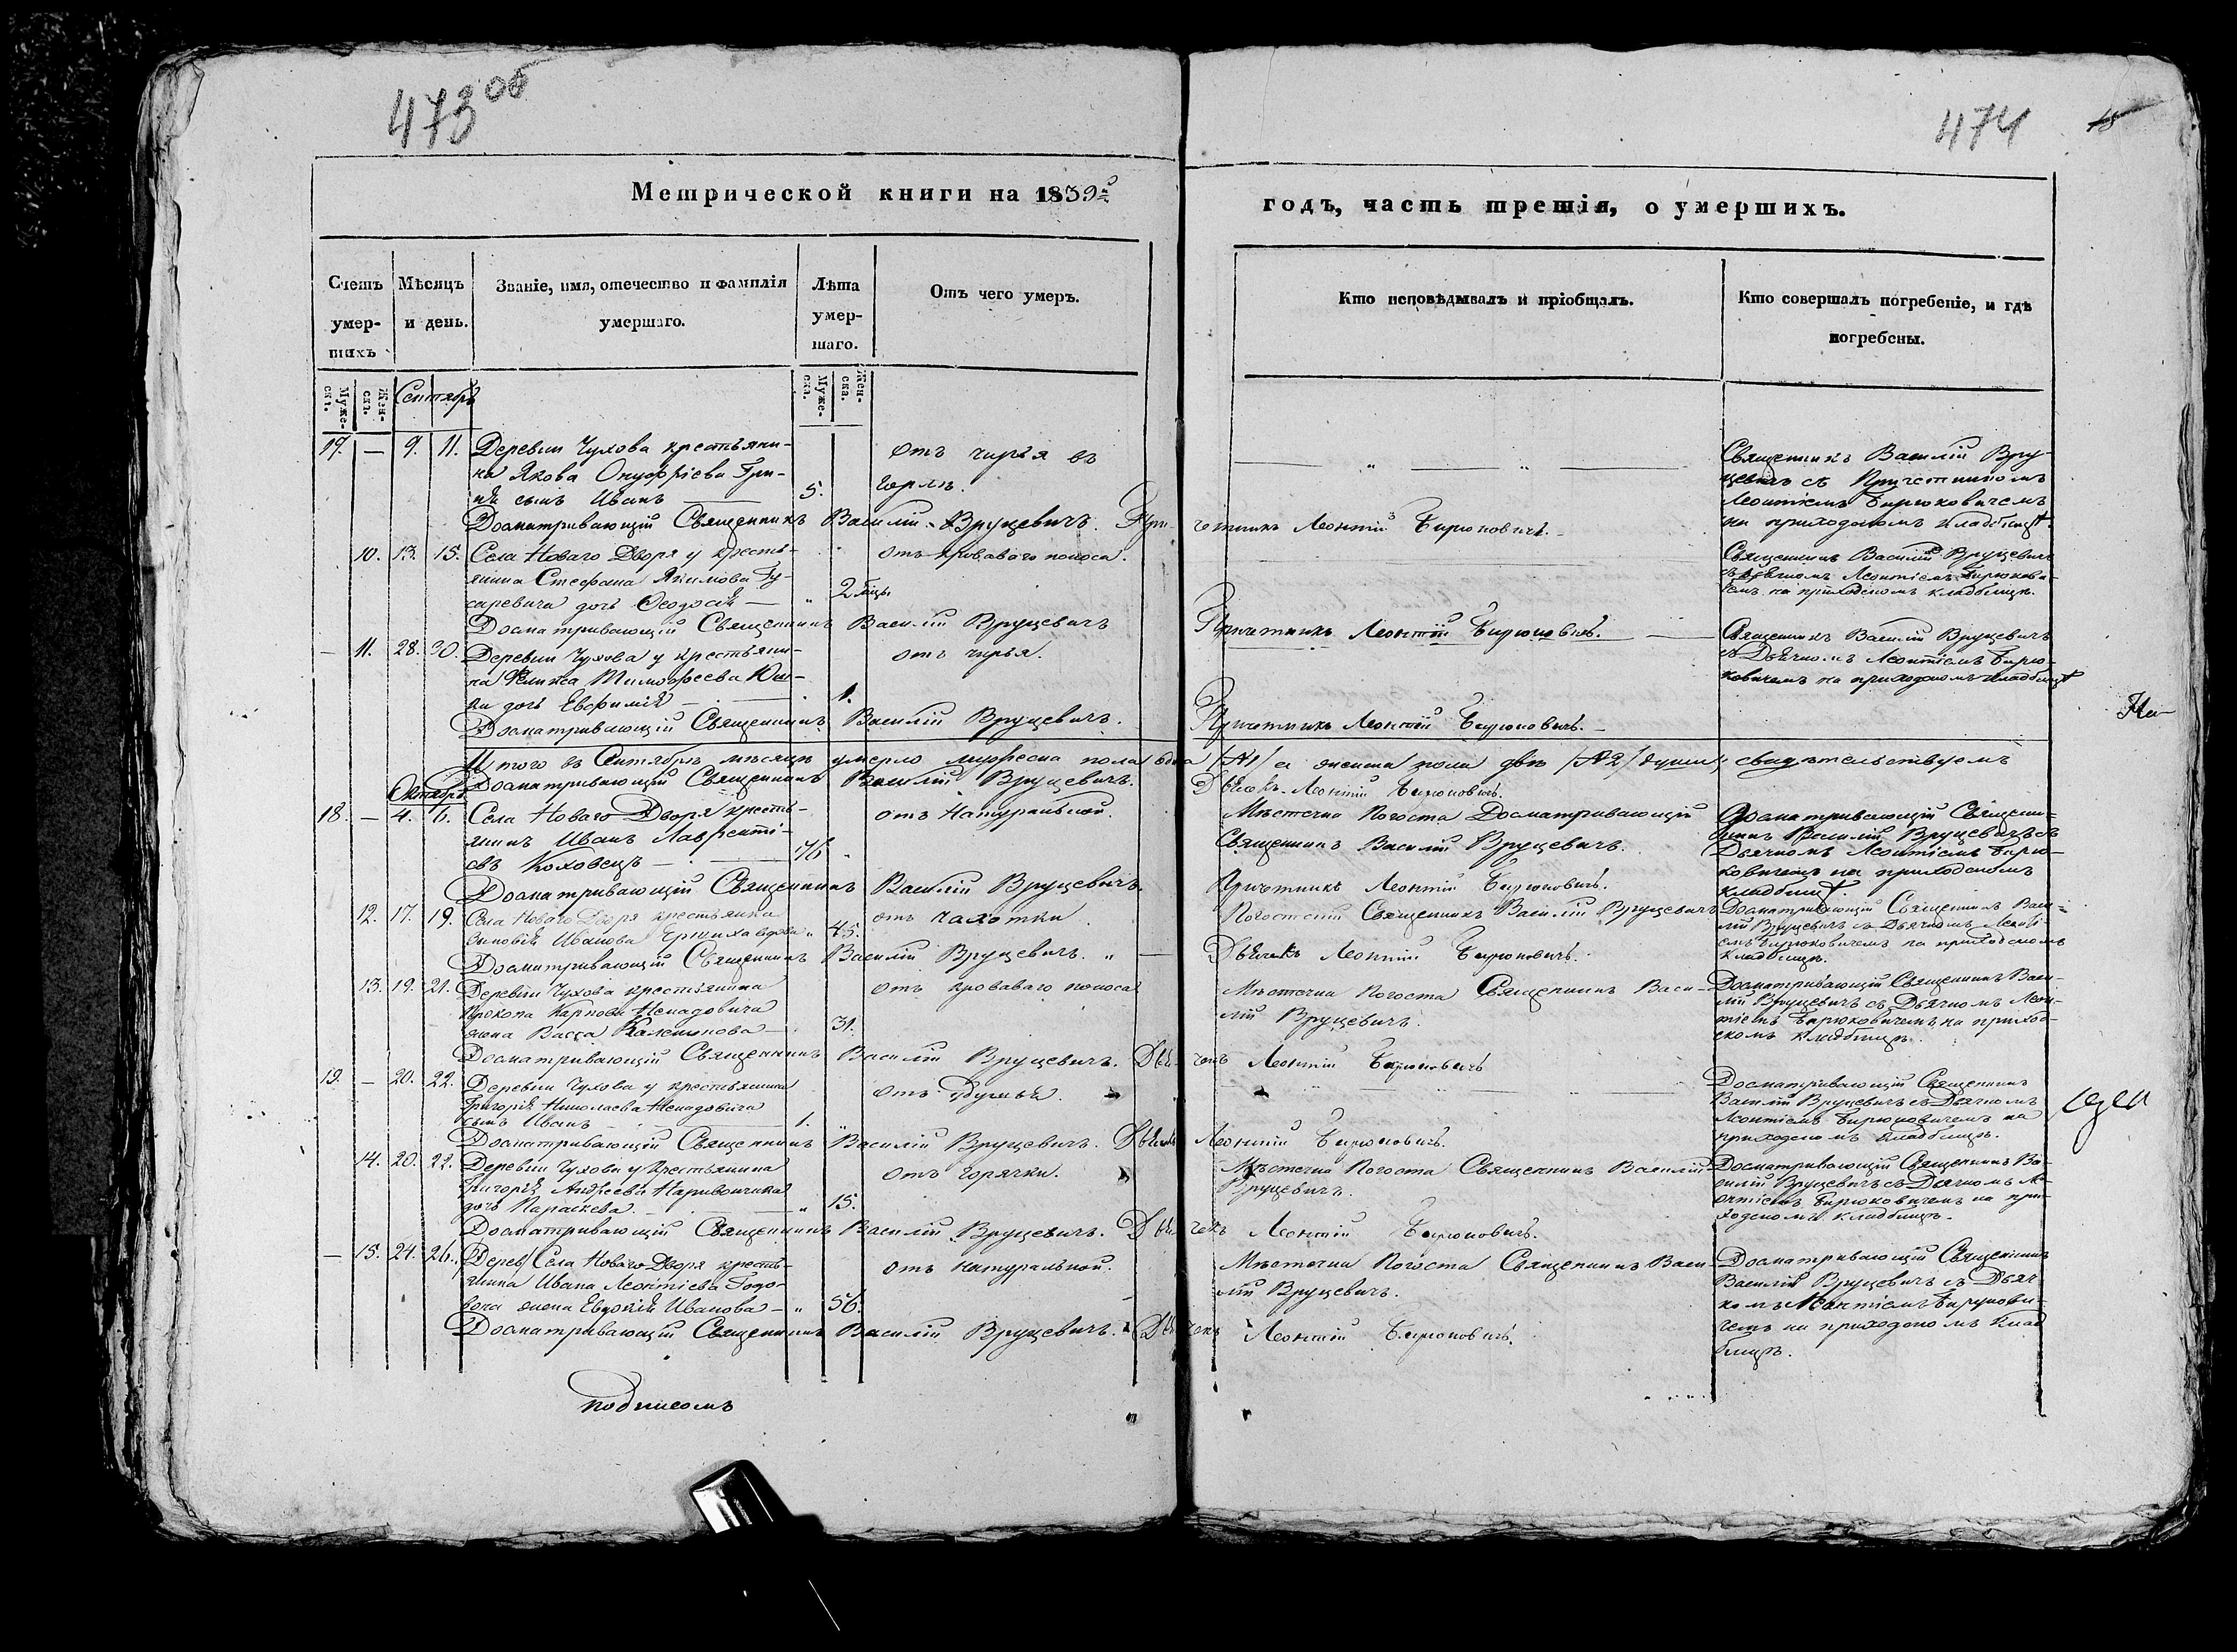 473 об
474
Метрической книги на 1839й
годъ, часть третія, о умершихъ.
Счетъ умер-шихъ
Мѣсяцъ и день.
Званіе, имя, отечество и фамилія умершаго.
Лѣта умер-шаго.
Отъ чего умеръ.
Кто исповѣдывалъ и пріобщалъ.
Кто совершалъ погребеніе, и гдѣ погребены.
Муже-ска.
Жен-ска.
Муже-ска.
Жен-ска.
Сентябрь
17. — 9. 11. Деревни Чухова крестьяни-
на Якова Онуфріева Гри-
сынъ Иванъ — 5.
отъ чирья въ
горлѣ.
Священникъ Василій Вру-
цевичъ съ Причетникомъ
Леонтіемъ Бирюковичемъ
на приходскомъ кладбищѣ.
Досматривающій Священникъ Василій Вруцевичъ. При-
четникъ Леонтій Бирюковичъ.
10. 13. 15. Села Новаго Двора у кресть-
янина Стефана Якимова Гу-
саревича дочь Ѳеодосія — 2
отъ кроваваго поноса.
Священникъ Василій Вруцевичъ
съ Дьячкомъ Леонтіемъ Бирюкови-
чемъ на приходскомъ кладбищѣ.
Досматривающій Священникъ Василій Вруцевичъ
Причетникъ Леонтій Бирюковичъ.
— 11. 28. 30. Деревни Чухова у крестьяни-
на Феликса Тимофеева
дочь Евфимія — 1.
отъ чирья.
Священникъ Василій Вруцевичъ
съ Дьячкомъ Леонтіемъ Бирю-
ковичемъ на приходскомъ кладбищѣ
Досматривающій Священникъ Василій Вруцевичъ.
Причетникъ Леонтій Бирюковичъ.
На-
Итого въ Сентябрѣ мѣсяцѣ умерло мужеска пола одна /№1/ а женска пола двѣ /№2/ души; свидѣтельствуемъ
Досматривающій Священникъ Василій Вруцевичъ.
Дьячокъ Леонтій Бирюковичъ.
Октябрь
18. — 4. 6. Села Новаго Двора кресть-
янинъ Иванъ Лаврентi-
евъ Коховецъ — 76
отъ Натуральной.
Мѣстечка Погоста Досматривающій
Священникъ Василій Вруцевичъ.
Досматривающій Священ-
никъ Василій Вруцевичъ съ
Дьячкомъ Леонтіемъ Бирю-
ковичемъ на приходскомъ
кладбищѣ.
Досматривающій Священникъ Василій Вруцевичъ.
Причетникъ Леонтій Бирюковичъ.
12. 17. 19. Села Новаго Двора крестьянка
Иванова вдова 45.
отъ чахотки
Погостскій Священникъ Василій Вруцевичъ
Досматривающій Священникъ Васи-
лій Вруцевичъ съ Дьячкомъ Леонті-
емъ Бирюковичемъ на приходскомъ
кладбищѣ.
Досматривающій Священникъ Василій Вруцевичъ. —
Дьячекъ Леонтій Бирюковичъ.
13. 19. 21. Деревни Чухова крестьянина
Прокопа Карпова Ненадовича
жена Васса — 31.
отъ кроваваго поноса
Мѣстечка Погоста Священникъ Васи-
лій Вруцевичъ.
Досматривающій Священникъ Васи-
лій Вруцевичъ съ Дьячкомъ Леон-
тіемъ Бирюковичемъ на приход-
скомъ кладбищѣ.
Досматривающій Священникъ Василій Вруцевичъ. Дья-
чекъ Леонтій Бирюковичъ
19. — 20. 22. Деревни Чухова у крестьянина
Григорія Николаева Ненадовича
сынъ Иванъ — 1.
отъ
Досматривающій Священникъ
Василій Вруцевичъ съ Дьячкомъ
Леонтіемъ Бирюковичемъ на
приходскомъ кладбищѣ.
Досматривающій Священникъ Василій Вруцевичъ. Дьячекъ
Леонтій Бирюковичъ.
14. 20. 22. Деревни Чухова у крестьянина
Григорія Андреева
дочь Параскева. — 15.
отъ горячки.
Мѣстечка Погоста Священникъ Василій
Вруцевичъ.
Досматривающій Священникъ Ва-
силій Вруцевичъ съ Дьячкомъ Ле-
онтіемъ Бирюковичемъ на при-
ходскомъ кладбищѣ.
Досматривающій Священникъ Василій Вруцевичъ. Дья-
чекъ Леонтій Бирюковичъ.
— 15. 24. 26. Дерев Села Новаго Двора кресть-
янина Ивана Леонтіева
жена Евдокія Иванова — 56.
отъ натуральной.
Мѣстечка Погоста Священникъ Васи-
лій Вруцевичъ.
Досматривающій Священникъ
Василій Вруцевичъ съ Дьяч-
комъ Леонтіемъ Бирукови-
чемъ на приходскомъ клад-
бищѣ.
Досматривающій Священникъ Василій Вруцевичъ. Дья-
чекъ Леонтій Бирюковичъ.